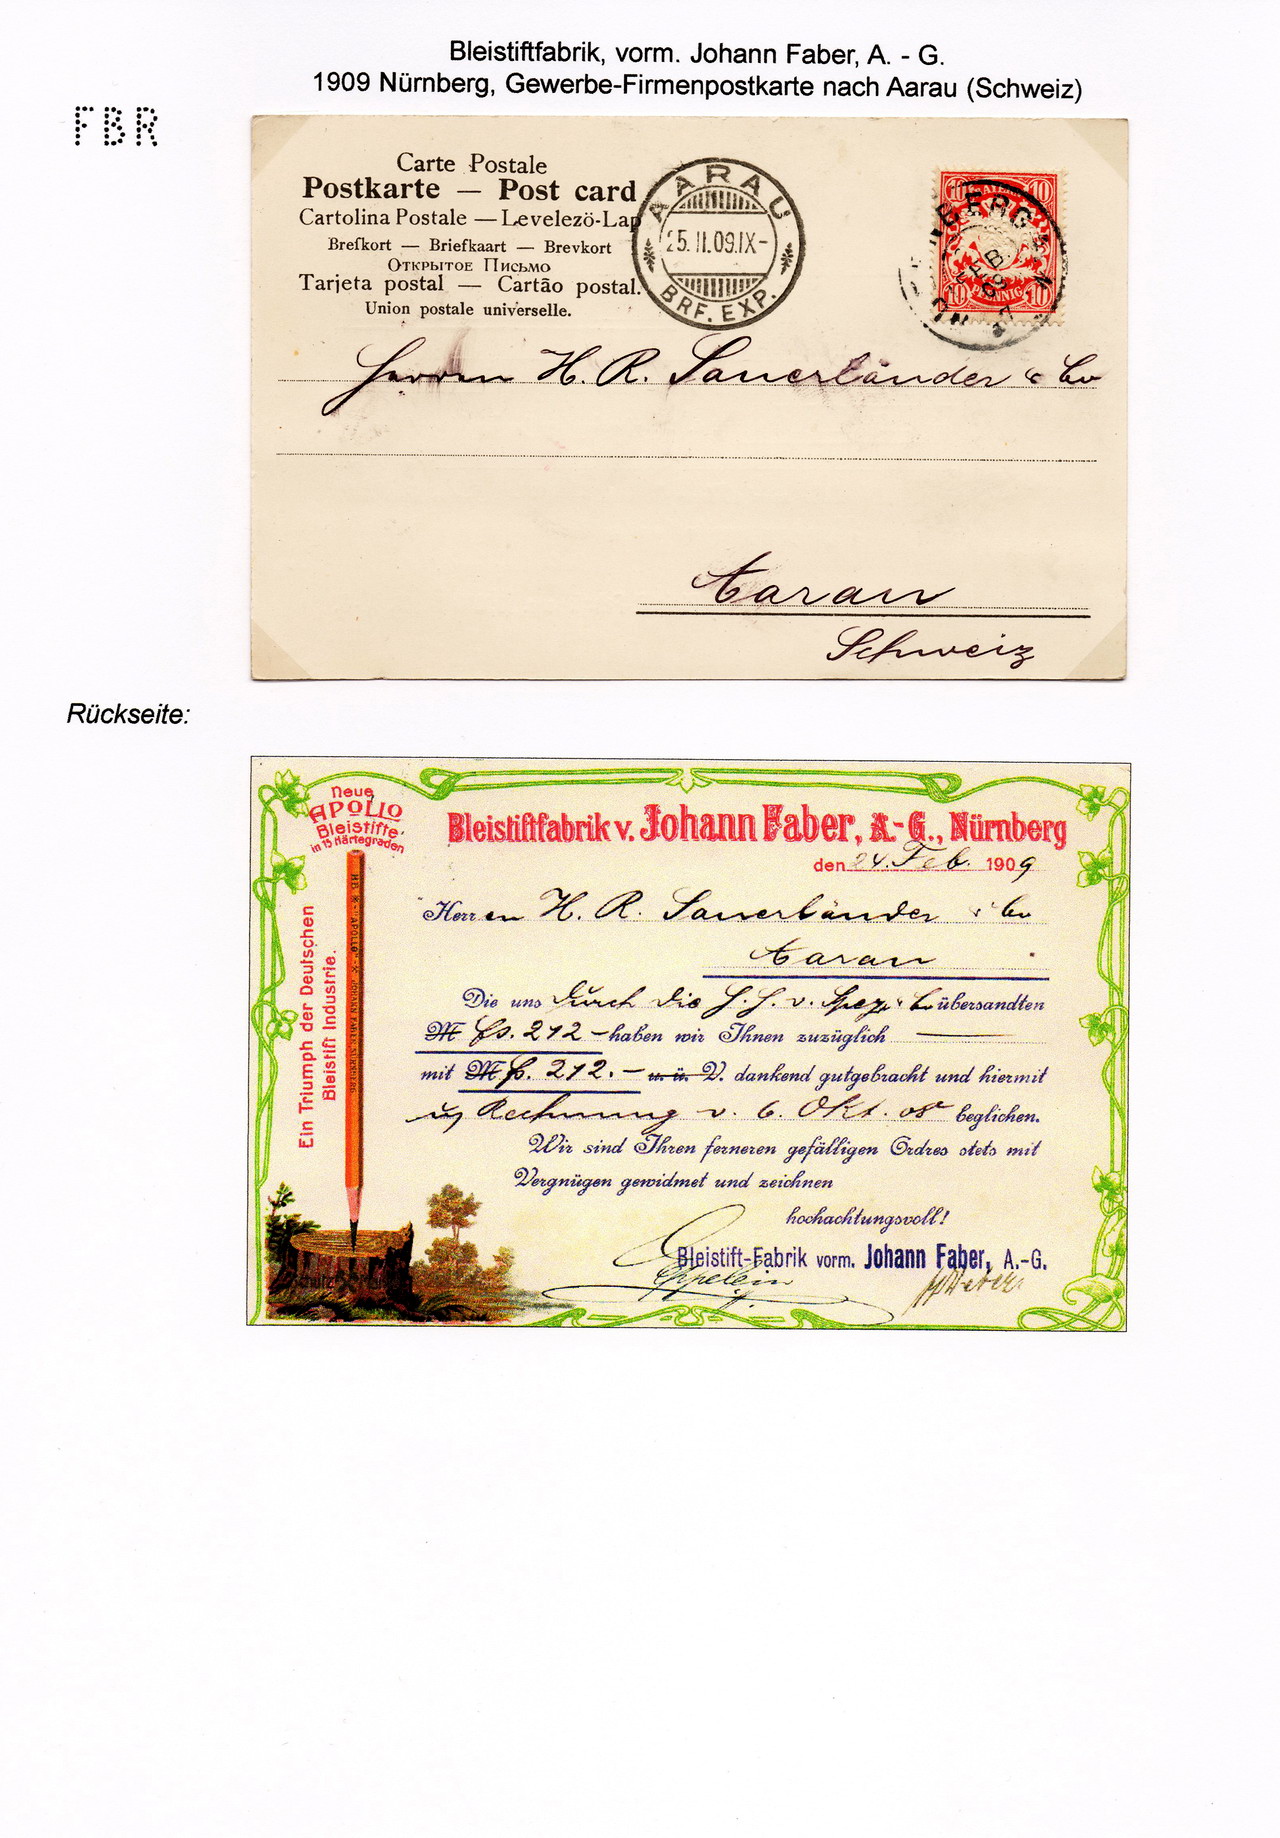 Bleistiftfabrik, vorm. Johann Faber, A. - G.
1909 Nürnberg, Gewerbe-Firmenpostkarte nach Aarau (Schweiz)
FBR
Carte Postale
Postkarte — Post card
Cartolina Postale — Levelezö-Lap
Brefkort — Briefkaart — Brevkort
Открытое Письмо
Tarjeta postal — Cartão postal.
Union postale universelle.
AARAU
25.II.09.IX-
BRF. EXP.
BAYERN
10 10
10 PFENNIG 10
FEB
09
Herren H. R. Sauerländer & Co
Aarau
Schweiz
Rückseite:
Neue
APOLLO
Bleistifte
in 15 Härtegraden
Ein Triumph der Deutschen
Bleistift Industrie.
HB "APOLLO" JOHANN FABER NÜRNBERG
Bleistiftfabrik v. Johann Faber, A.-G., Nürnberg
den 24. Feb. 1909
Herren H. R. Sauerländer & Co
Aarau
Die uns durch die H. H. v. übersandten
M fs. 212 – haben wir Ihnen zuzüglich
mit M fs. 212. – u. ü. V. dankend gutgebracht und hiermit
Rechnung v. 6. Okt. 08 beglichen.
Wir sind Ihren ferneren gefälligen Ordres stets mit
Vergnügen gewidmet und zeichnen
hochachtungsvoll!
Bleistift-Fabrik vorm. Johann Faber, A.-G.
Eppelein